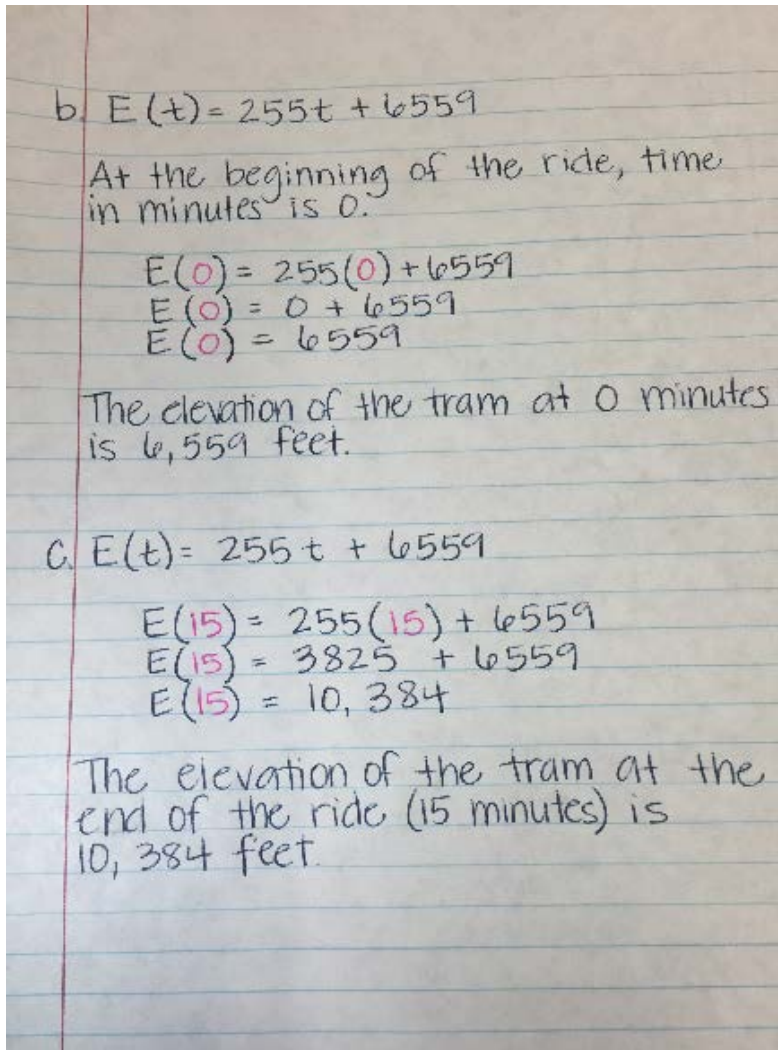 b. E(t) = 255t + 6559
At the beginning of the ride, time
in minutes is 0.
E(0) = 255(0) + 6559
E(0) = 0 + 6559
E(0) = 6559
The elevation of the tram at 0 minutes
is 6,559 feet.
C. E(t) = 255t + 6559
E(15) = 255(15) + 6559
E(15) = 3825 + 6559
E(15) = 10,384
The elevation of the tram at the
end of the ride (15 minutes) is
10,384 feet.